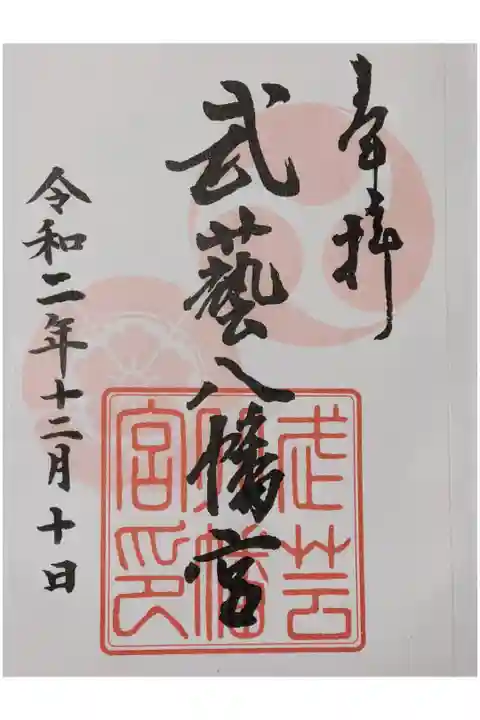 奉拝
武藝八幡宮
令和二年十二月十日
武芸
八幡
宮印